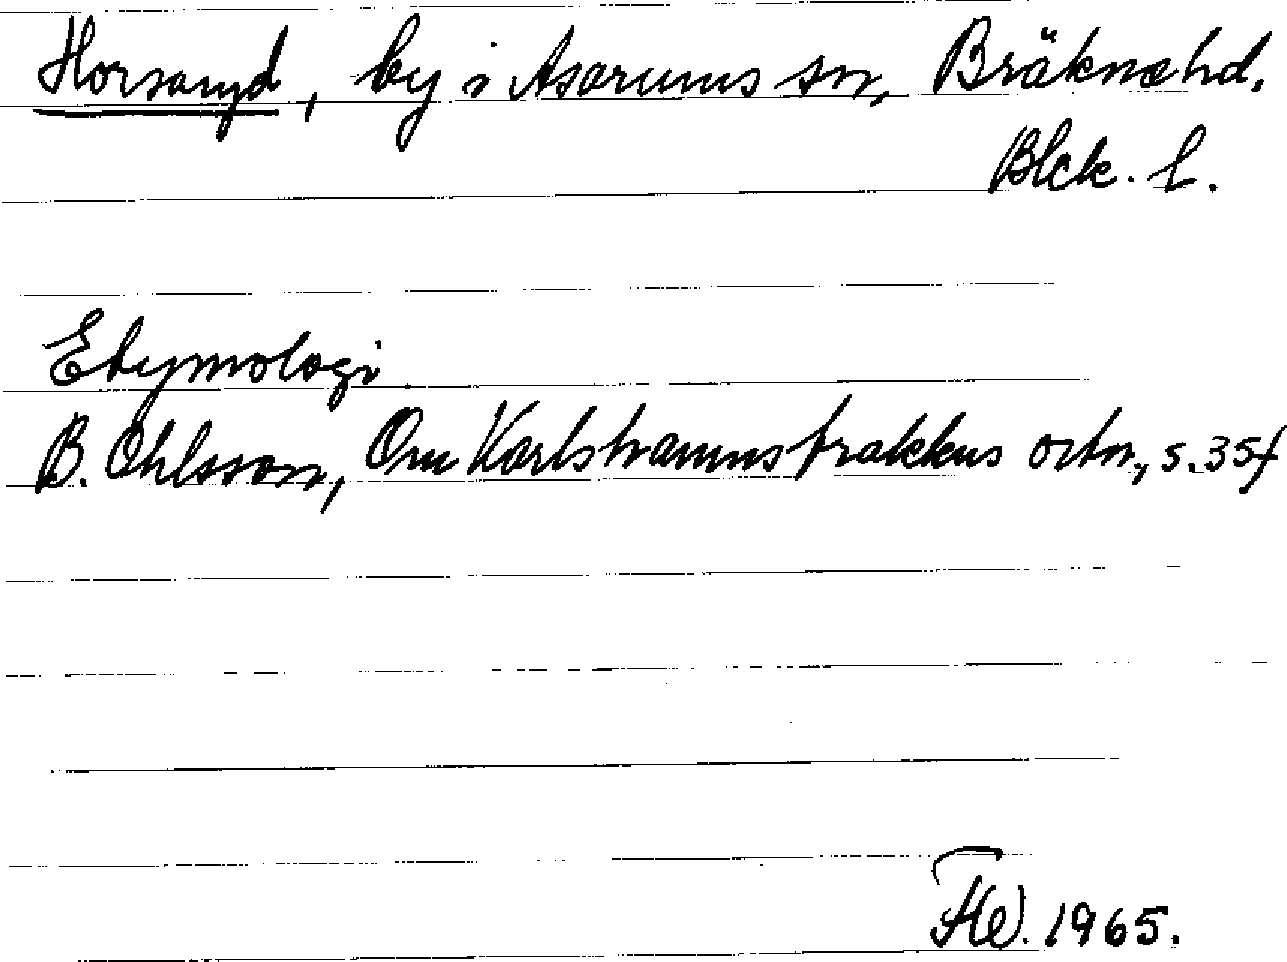 Horsaryd, by i Asarums sn, Bräkne hd.
Blek. l.
Etymologi
B. Ohlsson, Om Karlshamnstraktens ortn, s. 35f
1965.